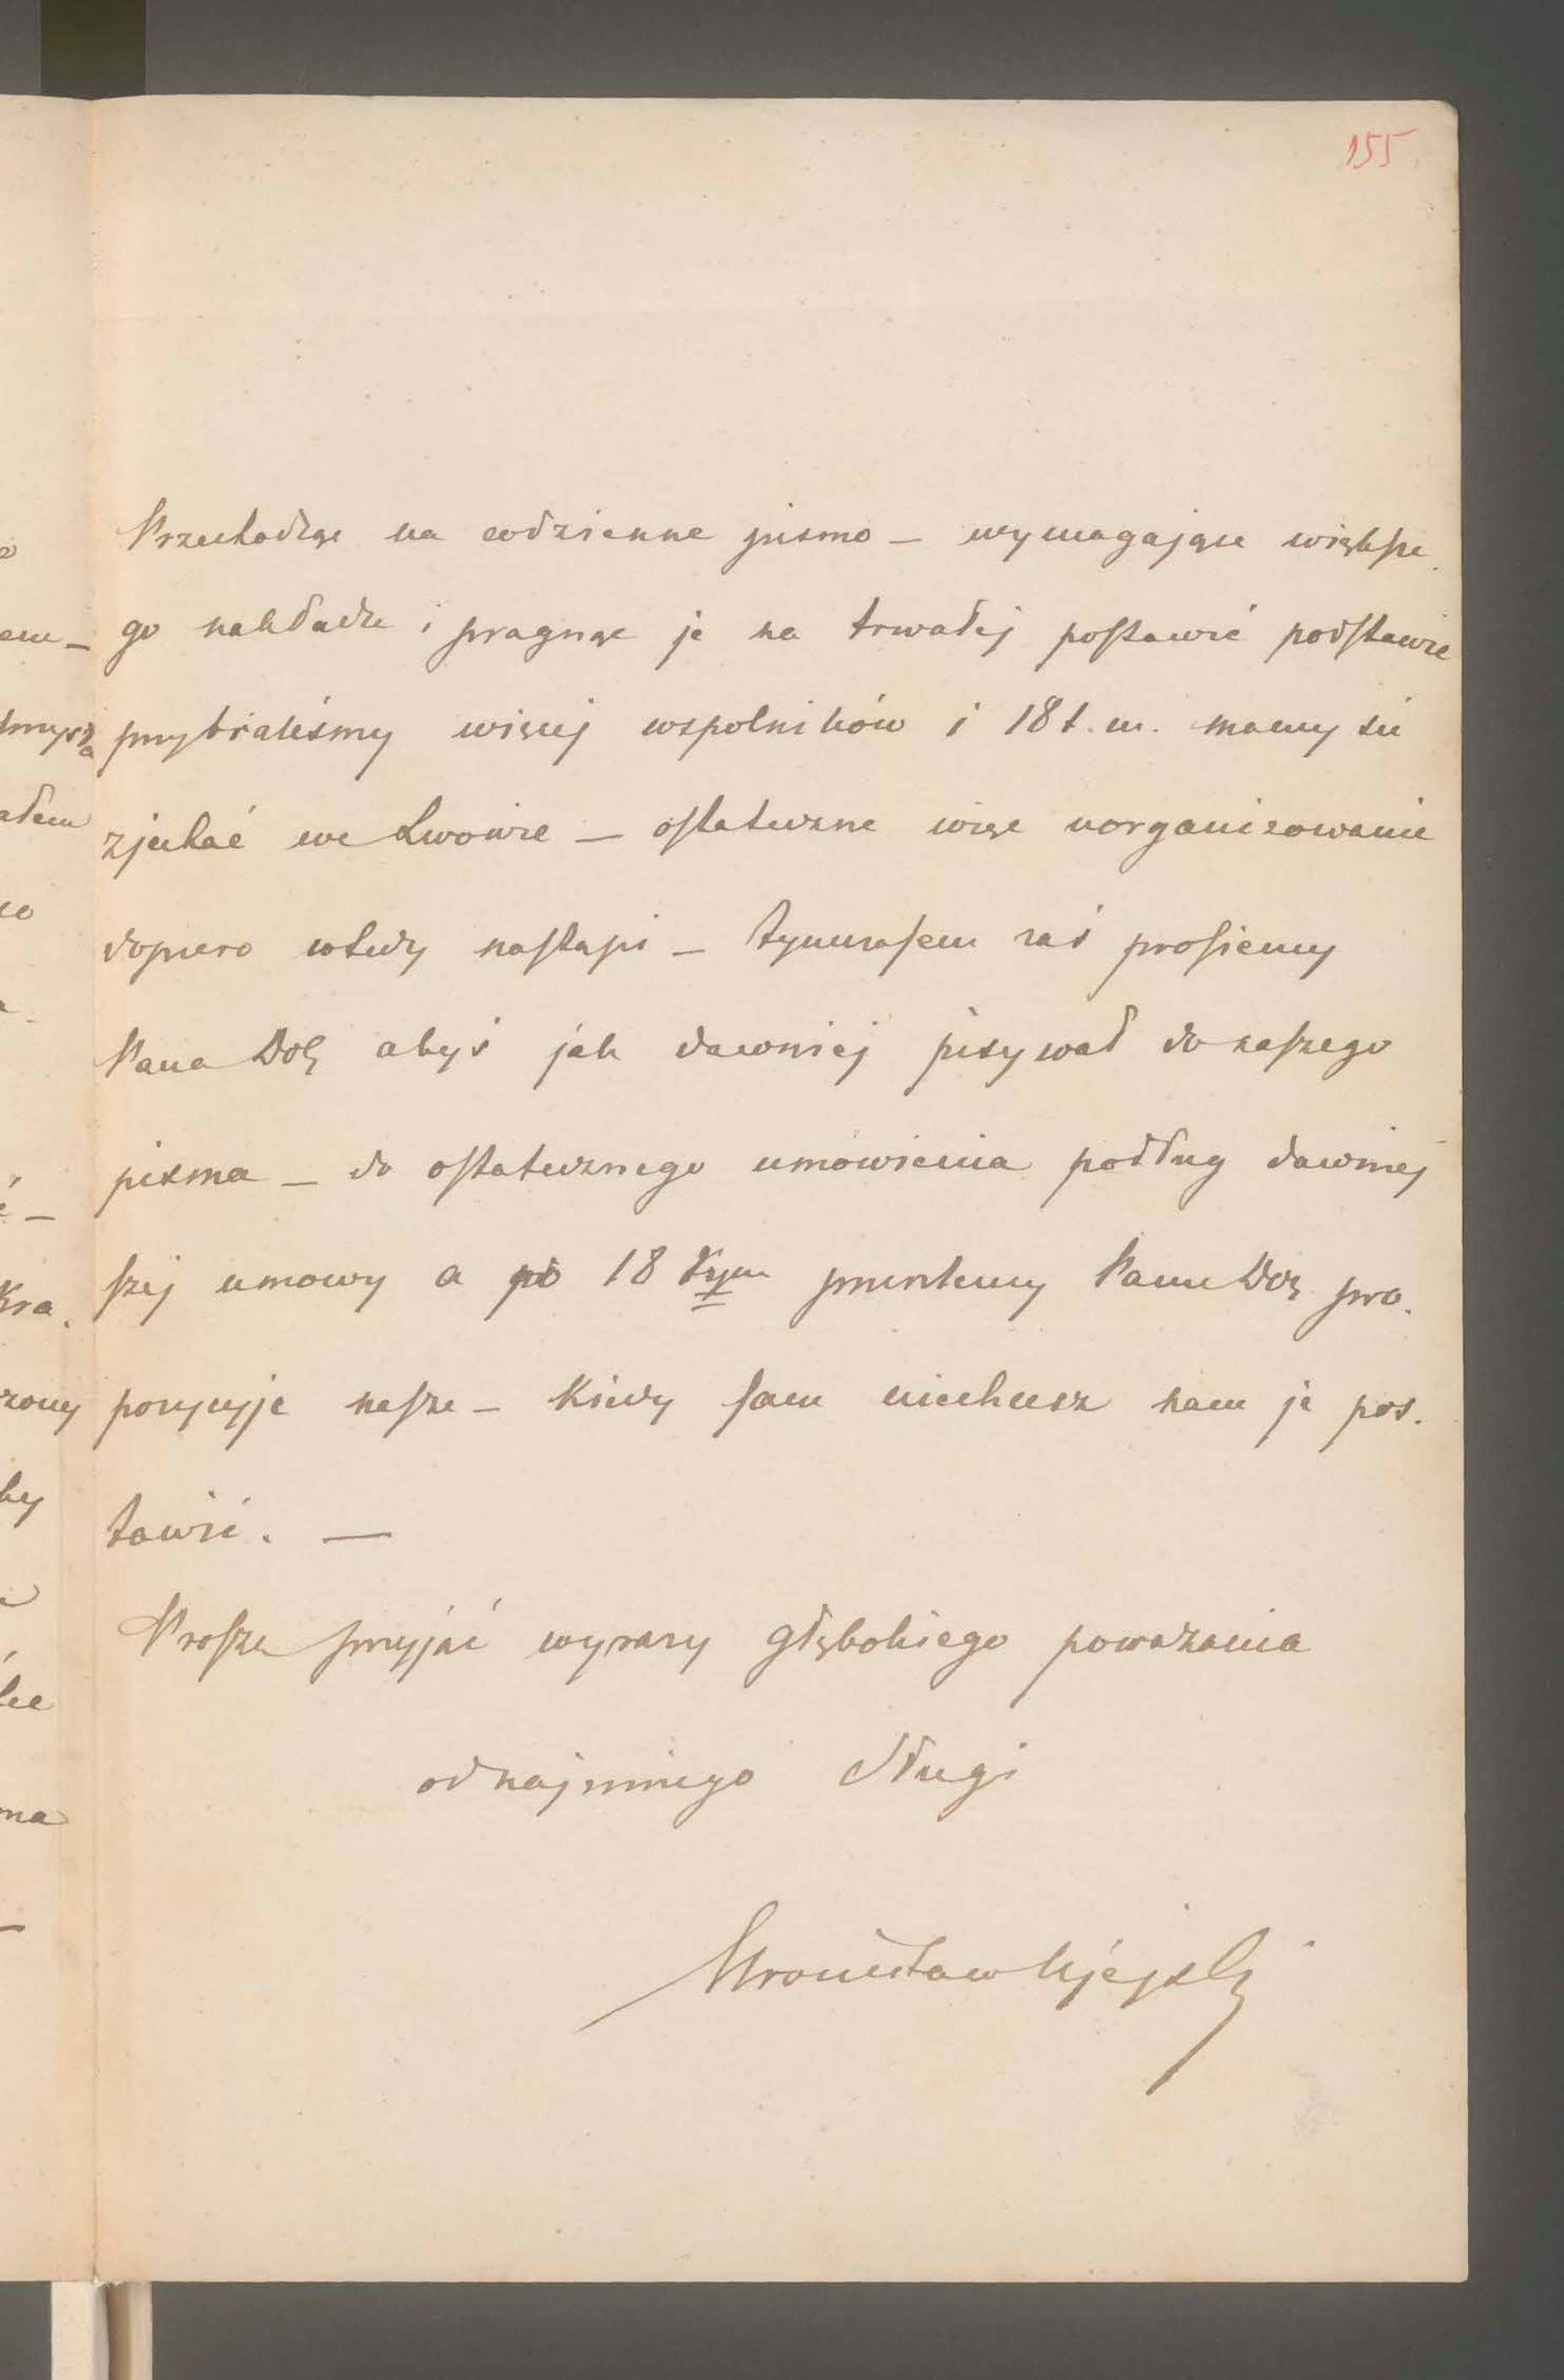 155
Przechodząc na codzienne pismo — wymagające większe
go nakładu i pragnąc je na trwałej postawić podstawie
przybraliśmy więcej wspolników i 18 t. m. mamy się
zjechać we Lwowie — ostateczne więc uorganizowanie
dopiero wtedy nastąpi — tymczasem zaś prosiemy
Pana Dob abyś jak dawniej pisywał do naszego
pisma — do ostatecznego umówienia podług dawniej
szej umowy a po 18tym prześlemy Panu Dob pro.
pozycyje nasze — Kiedy sam niechcesz nam je pos.
tawić. —
Proszę przyjąć wyrazy głębokiego poważania
od najniższego Sługi
Bronisław Ujejski